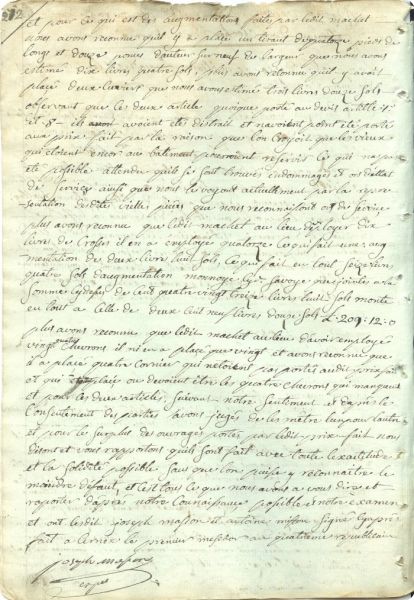 et pour ce qui est des augmentations faites par ledit machet
nous avons reconnu quil y a placé un levant de quatorze pieds de
longs et douze pouces d'auteur sur neuf de largeur que nous avons
estimé dix livres quatre sols, plus avons reconnu quil y avait
placé deux que nous avons estimé trois livres douze sols
observant que ce deux article quoique porté au devis article 7e
et 8e ils avoient été distrait et n'avoient point été porté
aux prix fait par la raison que l'on croyoit que les vieux
qui étoient encor au batiment pouroient reservir ce qui n'a pas
été possible attendu quils se sont trouvés endommagés et ors d'état
de service ainsi que nous le voyons actuellement par la repre
sentation desdites vielles pieces que nous reconnaissons ors de service
plus avons reconnu que ledit machet au lieu demployer dix
livres de crosses il en a employé quatorze ce qui fait une aug
mentation de deux livres huit sols, ce qui fait en tout seize livres
quatre sols d'augmentation monnoye de savoye jointes a la
somme cy dessus de cent quatre vingt treize livres huit sols monte
en tout a celle de deux cent neuf livres douze sols £ 209: 12: 0
plus avons reconnu que ledit machet au lieu d'avoir employé
vingt quatre chevrons il n'en a placé que vingt et avons reconnu que
il a placé quatre cornier qui n'etoient pas portés audit prix fait
et qui placé ou devoient être les quatre chevrons qui manquent
et pour ces deux articles, suivant notre sentiment et d'après le
consentement des parties avons jugés de les mètre l'un pour l'autre
et pour le surplus des ouvrages portés par ledit prix fait nous
disons et vous rapportons quils sont fait avec toute l'exactitude
et la solidité possible sans que l'on puisse y reconnaitre le
moindre defaut, et c'est tous ce que nous avons a vous dire et
raporter d'après notre connaissance possible et notre examen
et ont lesdit joseph masson et antoine signé
fait a le premier messidor an quatrieme republicain
joseph masson